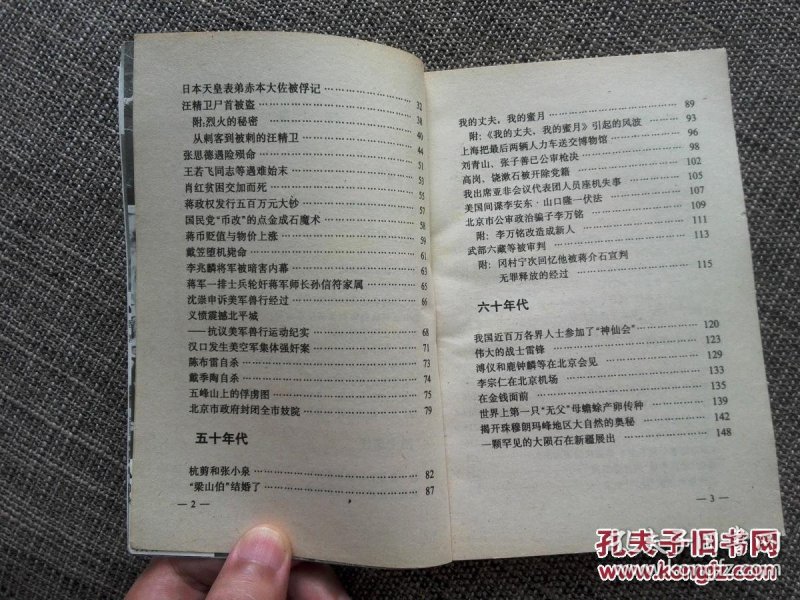 日本天皇表弟赤本大佐被俘记 ⋯⋯ 32
汪精卫尸首被盗 ⋯⋯ 38
附,烈火的秘密 ⋯⋯ 40
从刺客到被刺的汪精卫 ⋯⋯ 44
张思德遇险殒命 ⋯⋯ 51
王若飞同志等遇难始末 ⋯⋯ 53
肖红贫困交加而死 ⋯⋯ 55
蒋政权发行五百万元大钞 ⋯⋯ 57
国民党“币改”的点金成石魔术 ⋯⋯ 58
蒋币贬值与物价上涨 ⋯⋯ 59
戴笠堕机毙命 ⋯⋯ 61
李兆麟将军被暗害内幕 ⋯⋯ 63
蒋军一排士兵轮奸蒋军师长孙信符家属 ⋯⋯ 65
沈崇申诉美军兽行经过 ⋯⋯ 66
义愤震撼北平城
——抗议美军兽行运动纪实 ⋯⋯ 68
汉口发生美空军集体强奸案 ⋯⋯ 71
陈布雷自杀 ⋯⋯ 73
戴季陶自杀 ⋯⋯ 74
五峰山上的俘虏图 ⋯⋯ 75
北京市政府封闭全市妓院 ⋯⋯ 79
五十年代
杭剪和张小泉 ⋯⋯ 82
“梁山伯”结婚了 ⋯⋯ 87
— 2 —
我的丈夫，我的蜜月 ⋯⋯ 89
附:《我的丈夫，我的蜜月》引起的风波 ⋯⋯ 93
上海把最后两辆人力车送交博物馆 ⋯⋯ 96
刘青山、张子善已公审枪决 ⋯⋯ 98
高岗、饶漱石被开除党籍 ⋯⋯ 102
我出席亚非会议代表团人员座机失事 ⋯⋯ 105
美国间谍李安东·山口隆一伏法 ⋯⋯ 107
北京市公审政治骗子李万铭 ⋯⋯ 109
附: 李万铭改造成新人 ⋯⋯ 111
武部六藏等被审判 ⋯⋯ 113
附: 冈村宁次回忆他被蒋介石宣判
无罪释放的经过 ⋯⋯ 115
六十年代
我国近百万各界人士参加了“神仙会” ⋯⋯ 120
伟大的战士雷锋 ⋯⋯ 123
溥仪和鹿钟麟等在北京会见 ⋯⋯ 129
李宗仁在北京机场 ⋯⋯ 133
在金钱面前 ⋯⋯ 135
世界上第一只“无父”母蟾蜍产卵传种 ⋯⋯ 139
揭开珠穆朗玛峰地区大自然的奥秘 ⋯⋯ 142
一颗罕见的大陨石在新疆展出 ⋯⋯ 148
— 3 —
孔夫子旧书网
www.kongfz.com